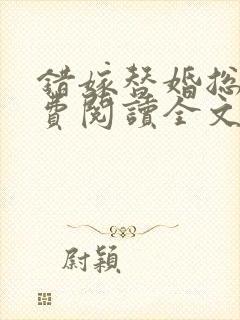 錯嫁替婚總
費閱讀全文
尉穎